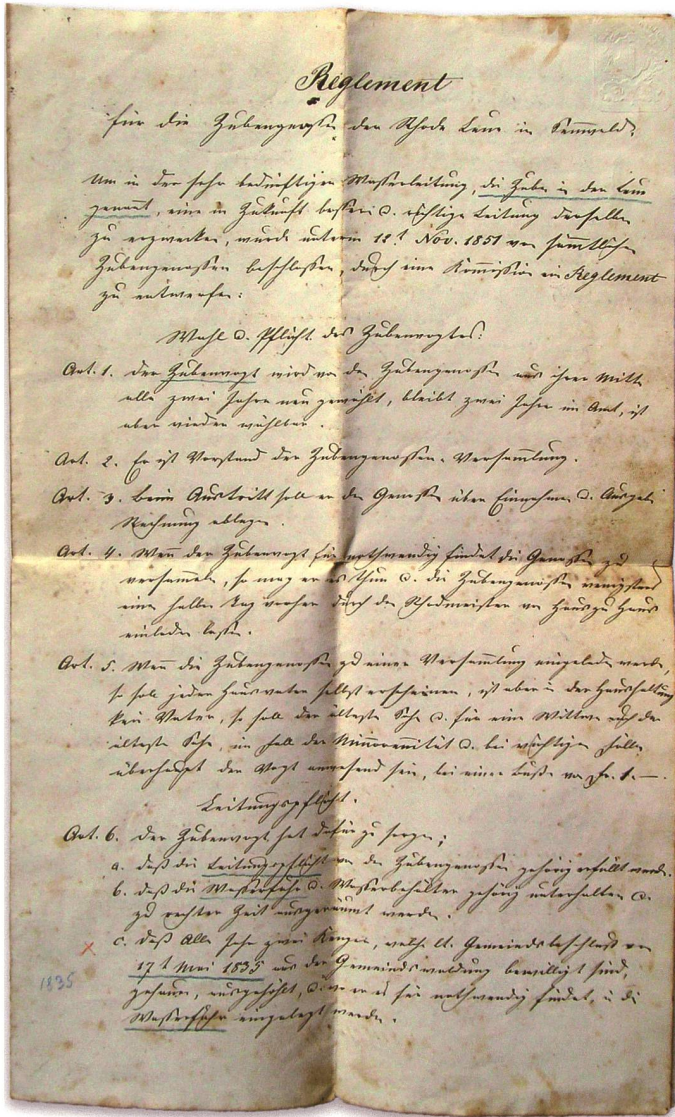 Reglement
für die Zubengenossen der Rhode Leue in Sennwald.
Um in der sehr bedürftigen Wasserleitung, die Zube in der Leue
genant, eine in Zukunft bessere u. richtige Leitung derselben
zu erzwecken, wurde unterm 12t Nov. 1851 von sämtlichen
Zubengenossen beschlossen, durch eine Kommission ein Reglement
zu entwerfen:
Wahl u. Pflicht des Zubenvogtes:
Art. 1. Der Zubenvogt wird von den Zubengenossen aus ihrer Mitte
alle zwei Jahre neu gewählt, bleibt zwei Jahre im Amt, ist
aber wieder wählbar.
Art. 2. Er ist Vorstand der Zubengenossen-Versammlung.
Art. 3. Beim Austritt soll er den Genossen über Einnahmen u. Ausgaben
Rechnung ablegen.
Art. 4. Wenn der Zubenvogt für nothwendig findet die Genossen zu
versammeln, so mag er es thun u. die Zubengenossen wenigstens
einen halben Tag vorher durch den Rhodmeister von Haus zu Haus
einladen lassen.
Art. 5. Wenn die Zubengenossen zu einer Versammlung eingeladen werden,
so soll jeder Hausvater selbst erscheinen, ist aber in der Haushaltung
kein Vater, so soll der älteste Sohn u. für eine Wittwe auch der
älteste Sohn, im Fall der Minorennität u. bei wichtigen Fällen
überhaupt der Vogt anwesend sein, bei einer Buße von Fr. 1.—.
Leitungspflicht.
Art. 6. Der Zubenvogt hat dafür zu sorgen;
a. daß die Leitungspflicht von den Zubengenossen gehörig erfüllt werde.
b. daß die Wasserfuhr u. Wasserbehälter gehörig unterhalten u.
zu rechter Zeit ausgeräumt werden.
c. daß Alle Jahr zwei Kenzen, welche lt. Gemeindsbeschluß von
17t Mai 1835 aus der Gemeindswaldung bewilligt sind,
gehauen, ausgehöhlt, u. wo er es für nothwendig findet, in die
Wasserfuhr eingelegt werden.
1835